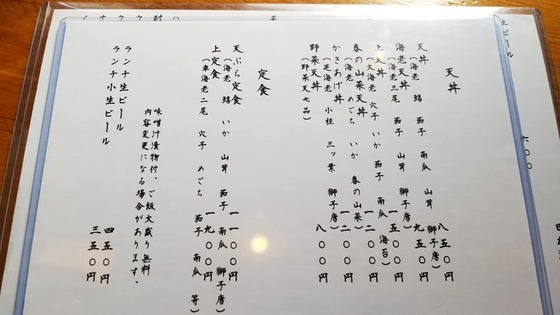 生ビール
六〇〇
天丼
天丼 八五〇円
(海老 鱚 いか 茄子 南瓜 山茸 獅子唐)
海老天丼 九五〇円
(海老三尾 茄子 山茸 獅子唐)
上天丼 一五〇〇円
(大海老 穴子 いか 茄子 南瓜 海苔)
春の山菜天丼 一二〇〇円
(海老 めごち いか 春の山菜)
かきあげ丼 一二〇〇円
(芝海老 小柱 三ッ葉 獅子唐)
野菜天丼 八〇〇円
(野菜天七品)
定食
天ぷら定食 一一〇〇円
(海老 鱚 いか 山茸 茄子 南瓜 獅子唐)
上定食 一九〇〇円
(車海老二尾 穴子 めごち 茄子 南瓜 等)
味噌汁漬物付、ご飯大盛り無料
内容変更になる場合があります。
ランチ生ビール 四五〇円
ランチ小生ビール 三五〇円